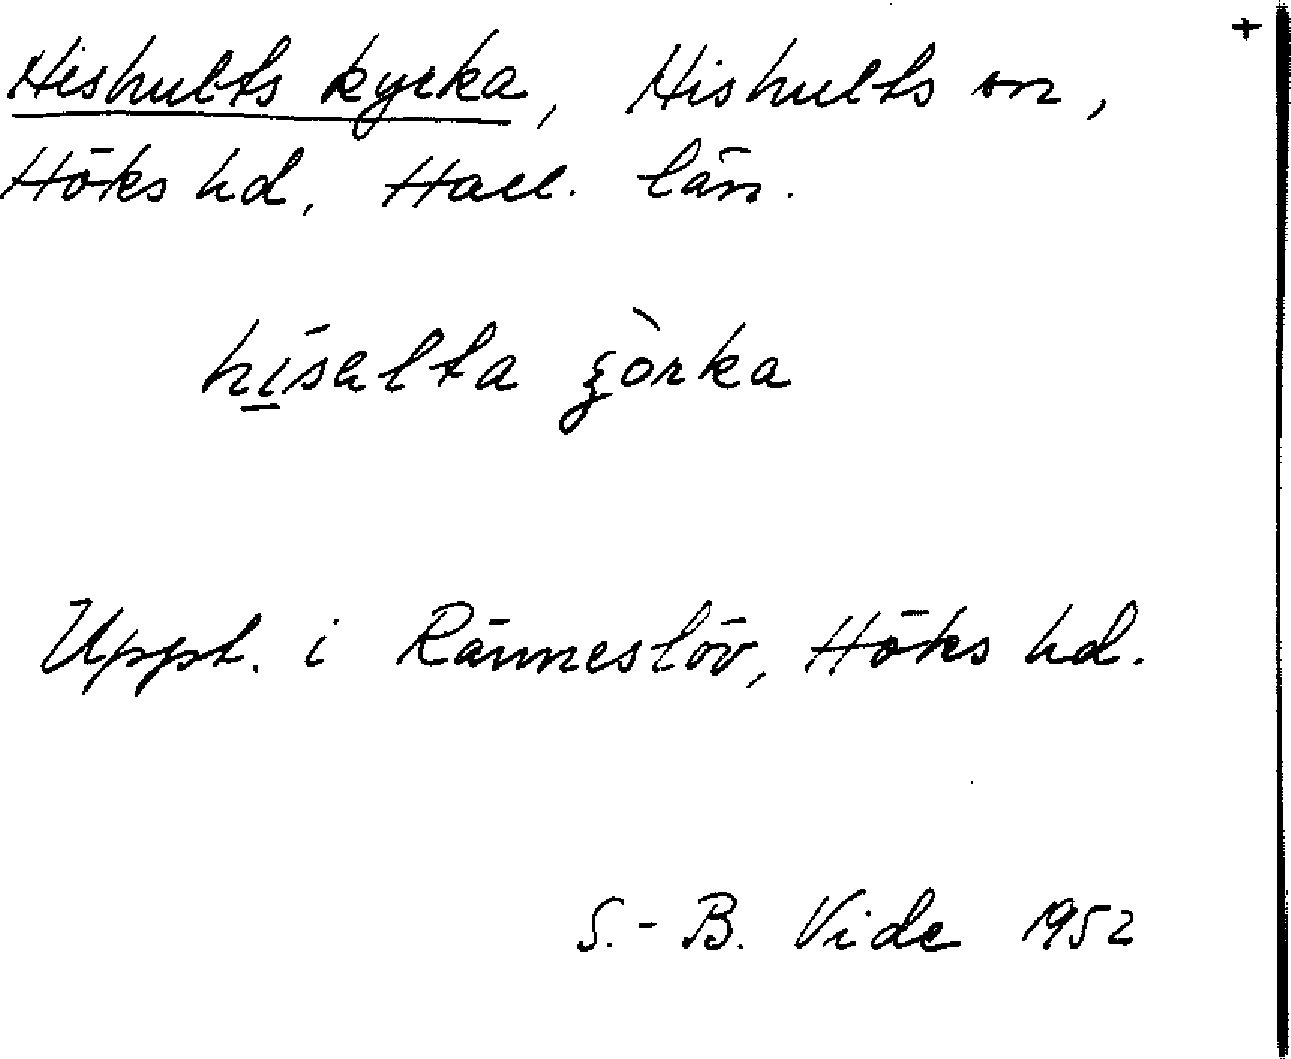 +
Hishults kyrka, Hishults sn,
Höks hd, Hall. län.
hísalta
Uppt. i Ränneslöv, Höks hd.
S.-B. Vide 1952